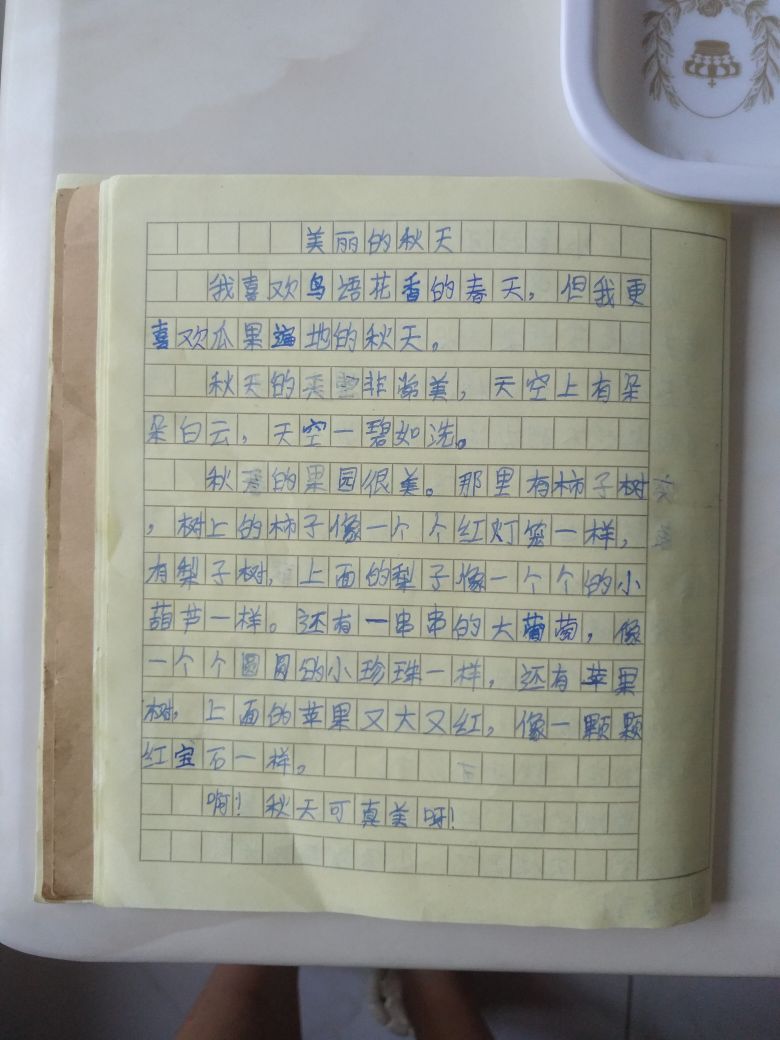 美丽的秋天
我喜欢鸟语花香的春天，但我更
喜欢瓜果遍地的秋天。
秋天的天空非常美，天空上有朵
朵白云，天空一碧如洗。
秋天的果园很美。那里有柿子树
，树上的柿子像一个个红灯笼一样，
有梨子树，上面的梨子像一个个的小
葫芦一样。还有一串串的大葡萄，像
一个个圆圆的小珍珠一样，还有苹果
树，上面的苹果又大又红，像一颗颗
红宝石一样。
啊！秋天可真美呀！